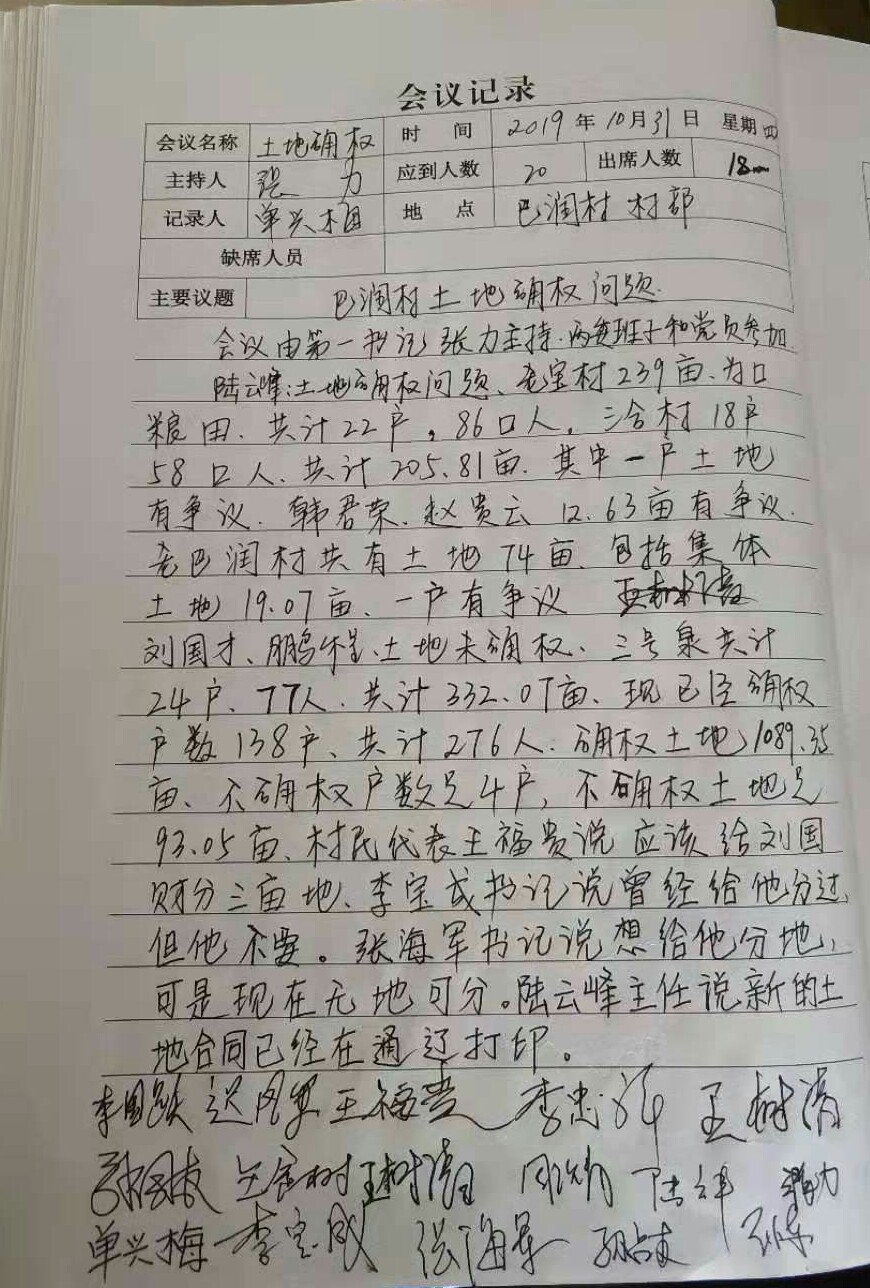 会议记录
会议名称 土地确权 时间 2019年10月31日 星期四
主持人 张力 应到人数 20 出席人数 18
记录人 单兴梅 地点 巴润村 村部
缺席人员
主要议题 巴润村土地确权问题.
会议由第一书记张力主持.两委班子和党员参加
陆云峰:土地确权问题、老宝村239亩、为口
粮田.共计22户。86口人。三合村18户
58口人.共计205.81亩.其中一户土地
有争议.韩君荣.赵贵云12.63亩有争议.
老巴润村共有土地74亩.包括集体
土地19.07亩、一户有争议
刘国才、鹏程、土地未确权、三号泉共计
24户、77人.共计332.07亩、现已经确权
户数138户、共计276人.确权土地1089.35
亩、不确权户数是4户,不确权土地是
93.05亩、村民代表王福贵说应该给刘国
财分三亩地、李宝成书记说曾经给他分过,
但他不要。张海军书记说想给他分地,
可是现在无地可分。陆云峰主任说新的土
地合同已经在通辽打印。
李国跃 王福贵 李忠 王树清
王金树 王树清 张力
单兴梅 李宝成 张海军